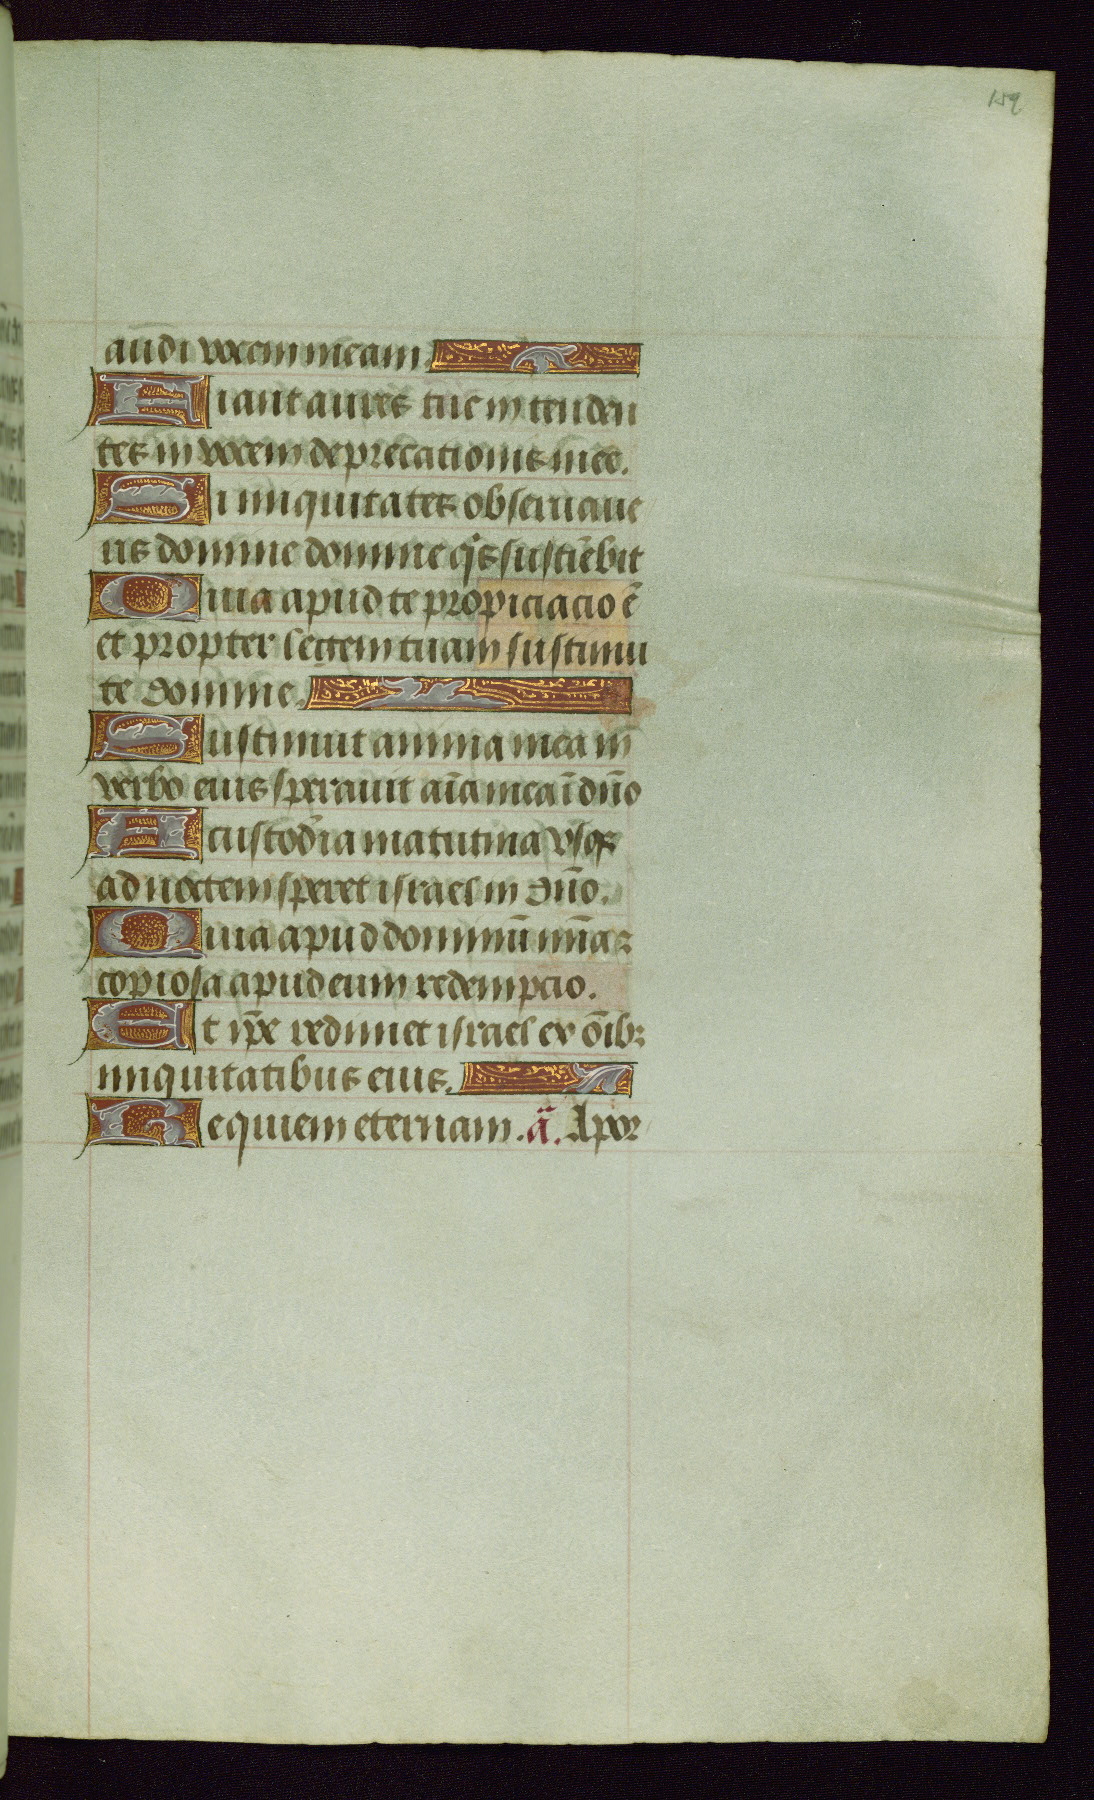 159
audi vocem meam
Fiant aures tue in tenden
tes in vocem deprecationis mee.
Si iniquitates obseruaue
ris domine domine q̇s sustiēbit
Quia apud te propiciacio ē
et propter legem tuam sustinui
te domine.
Sustinuit anima mea in
verbo eius sperauit aīa mea ī dn̄o
A custodia matutina vsqꝫ
ad noctem speret israel in dn̄o.
Quia apud dominū mīaꝫ
copiosa apud eum redempcio.
Et ip̄e redimet israel ex oībꝫ
iniquitatibus eius.
Requiem eternam. a͞. A por